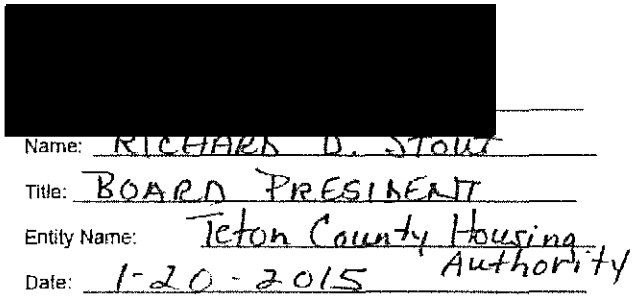 Name: RICHARD D. STOUT
Title: BOARD PRESIDENT
Entity Name: Teton County Housing
Authority
Date: 1-20-2015